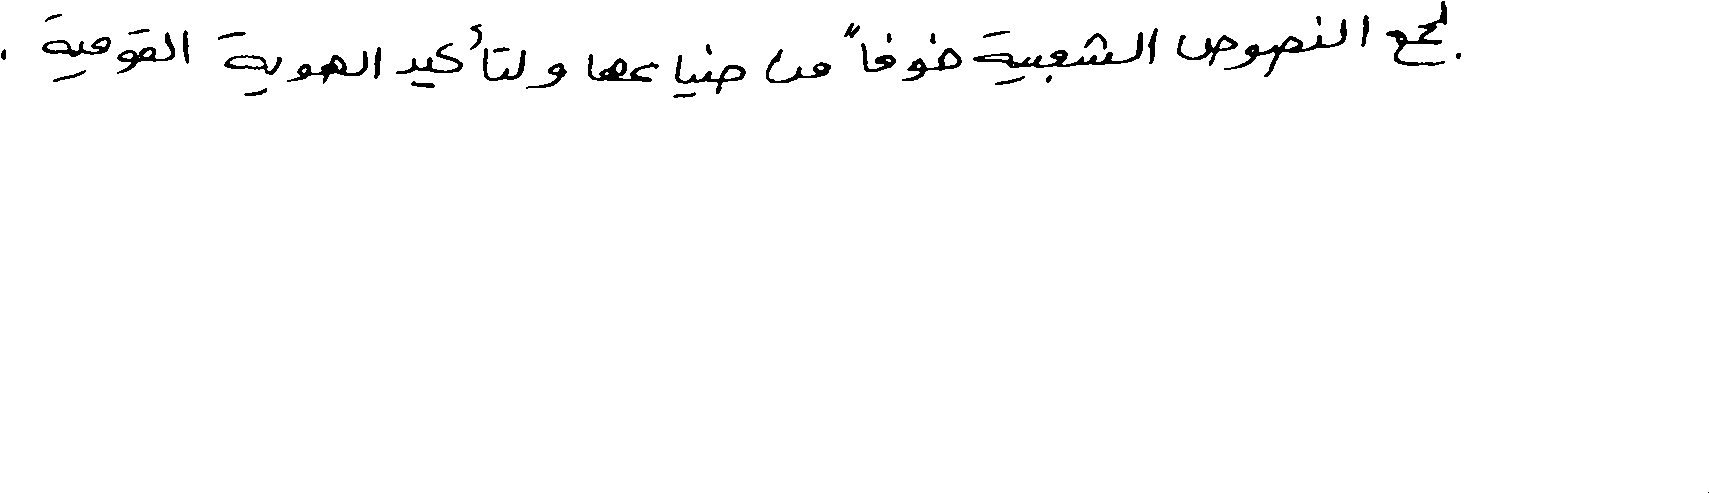 لجمع النصوص الشعبية خوفاً من ضياعها ولتأكيد الهوية القومية .